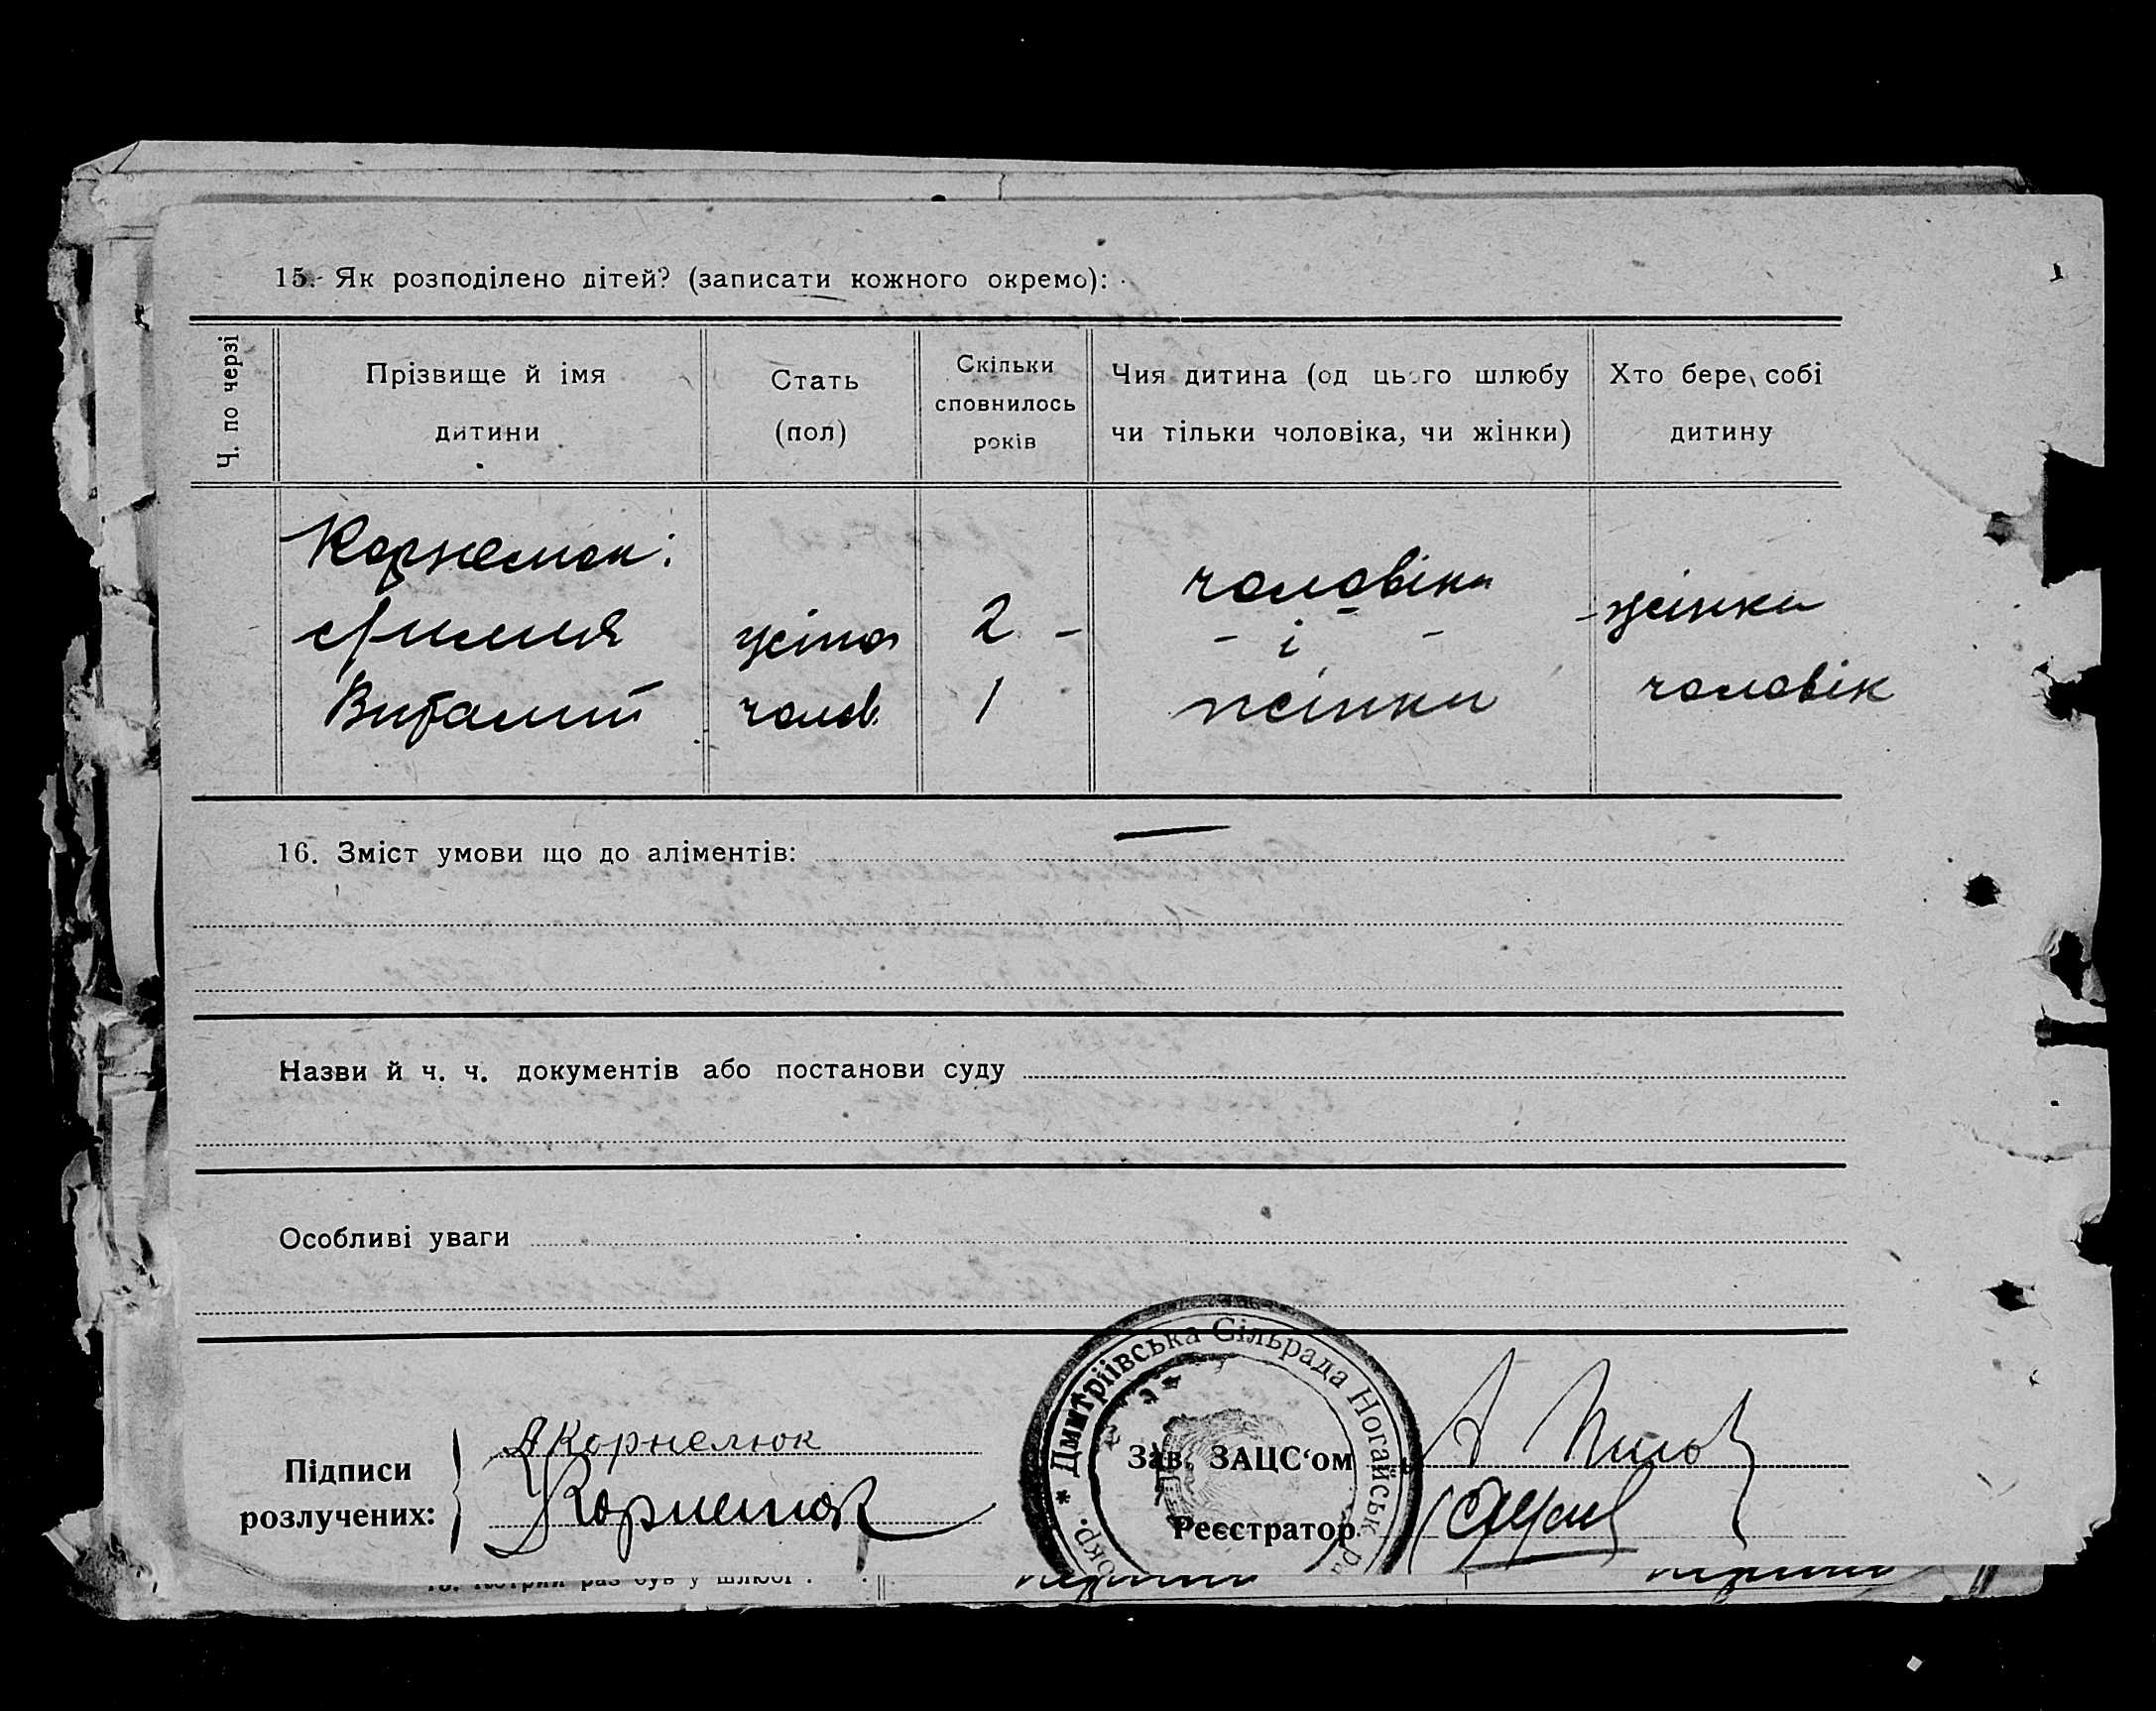 15. Як розподілено дітей? (записати кожного окремо):
Ч. по черзі
Прізвище й імя дитини
Стать (пол)
Скільки сповнилось років
Чия дитина (од цього шлюбу чи тільки чоловіка, чи жінки)
Хто бере собі дитину
Корнелюк:
чоловіка
жіноч
2 -
- і -
жінка
Виталий
чолов.
1
жінки
чоловік
16. Зміст умови що до аліментів: —
Назви й ч. ч. документів або постанови суду
Особливі уваги
Підписи розлучених:
АКорнелюк
Корнелюк
Зав. ЗАЦС‘ом
Реєстратор
* Дмитріівська Сільрада Ногайськ
окр.
13. Котрий раз був у шлюбі